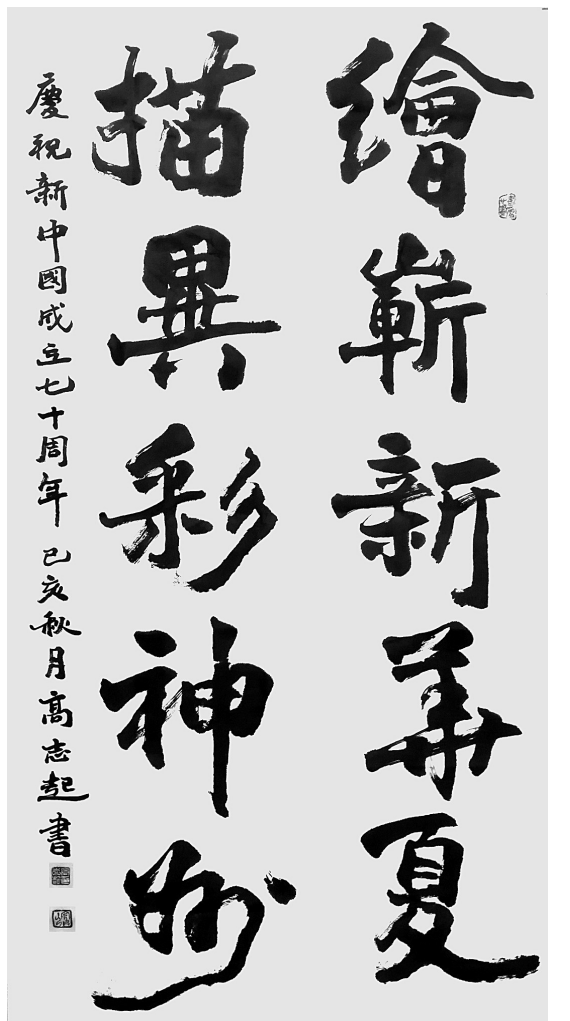 繪嶄新華夏
描異彩神州
慶祝新中國成立七十周年 己亥秋月高志起書